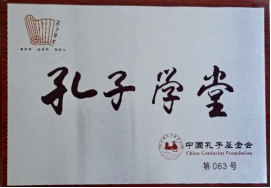 孔子学堂
中国孔子基金会
China Confucius Foundation
第063号